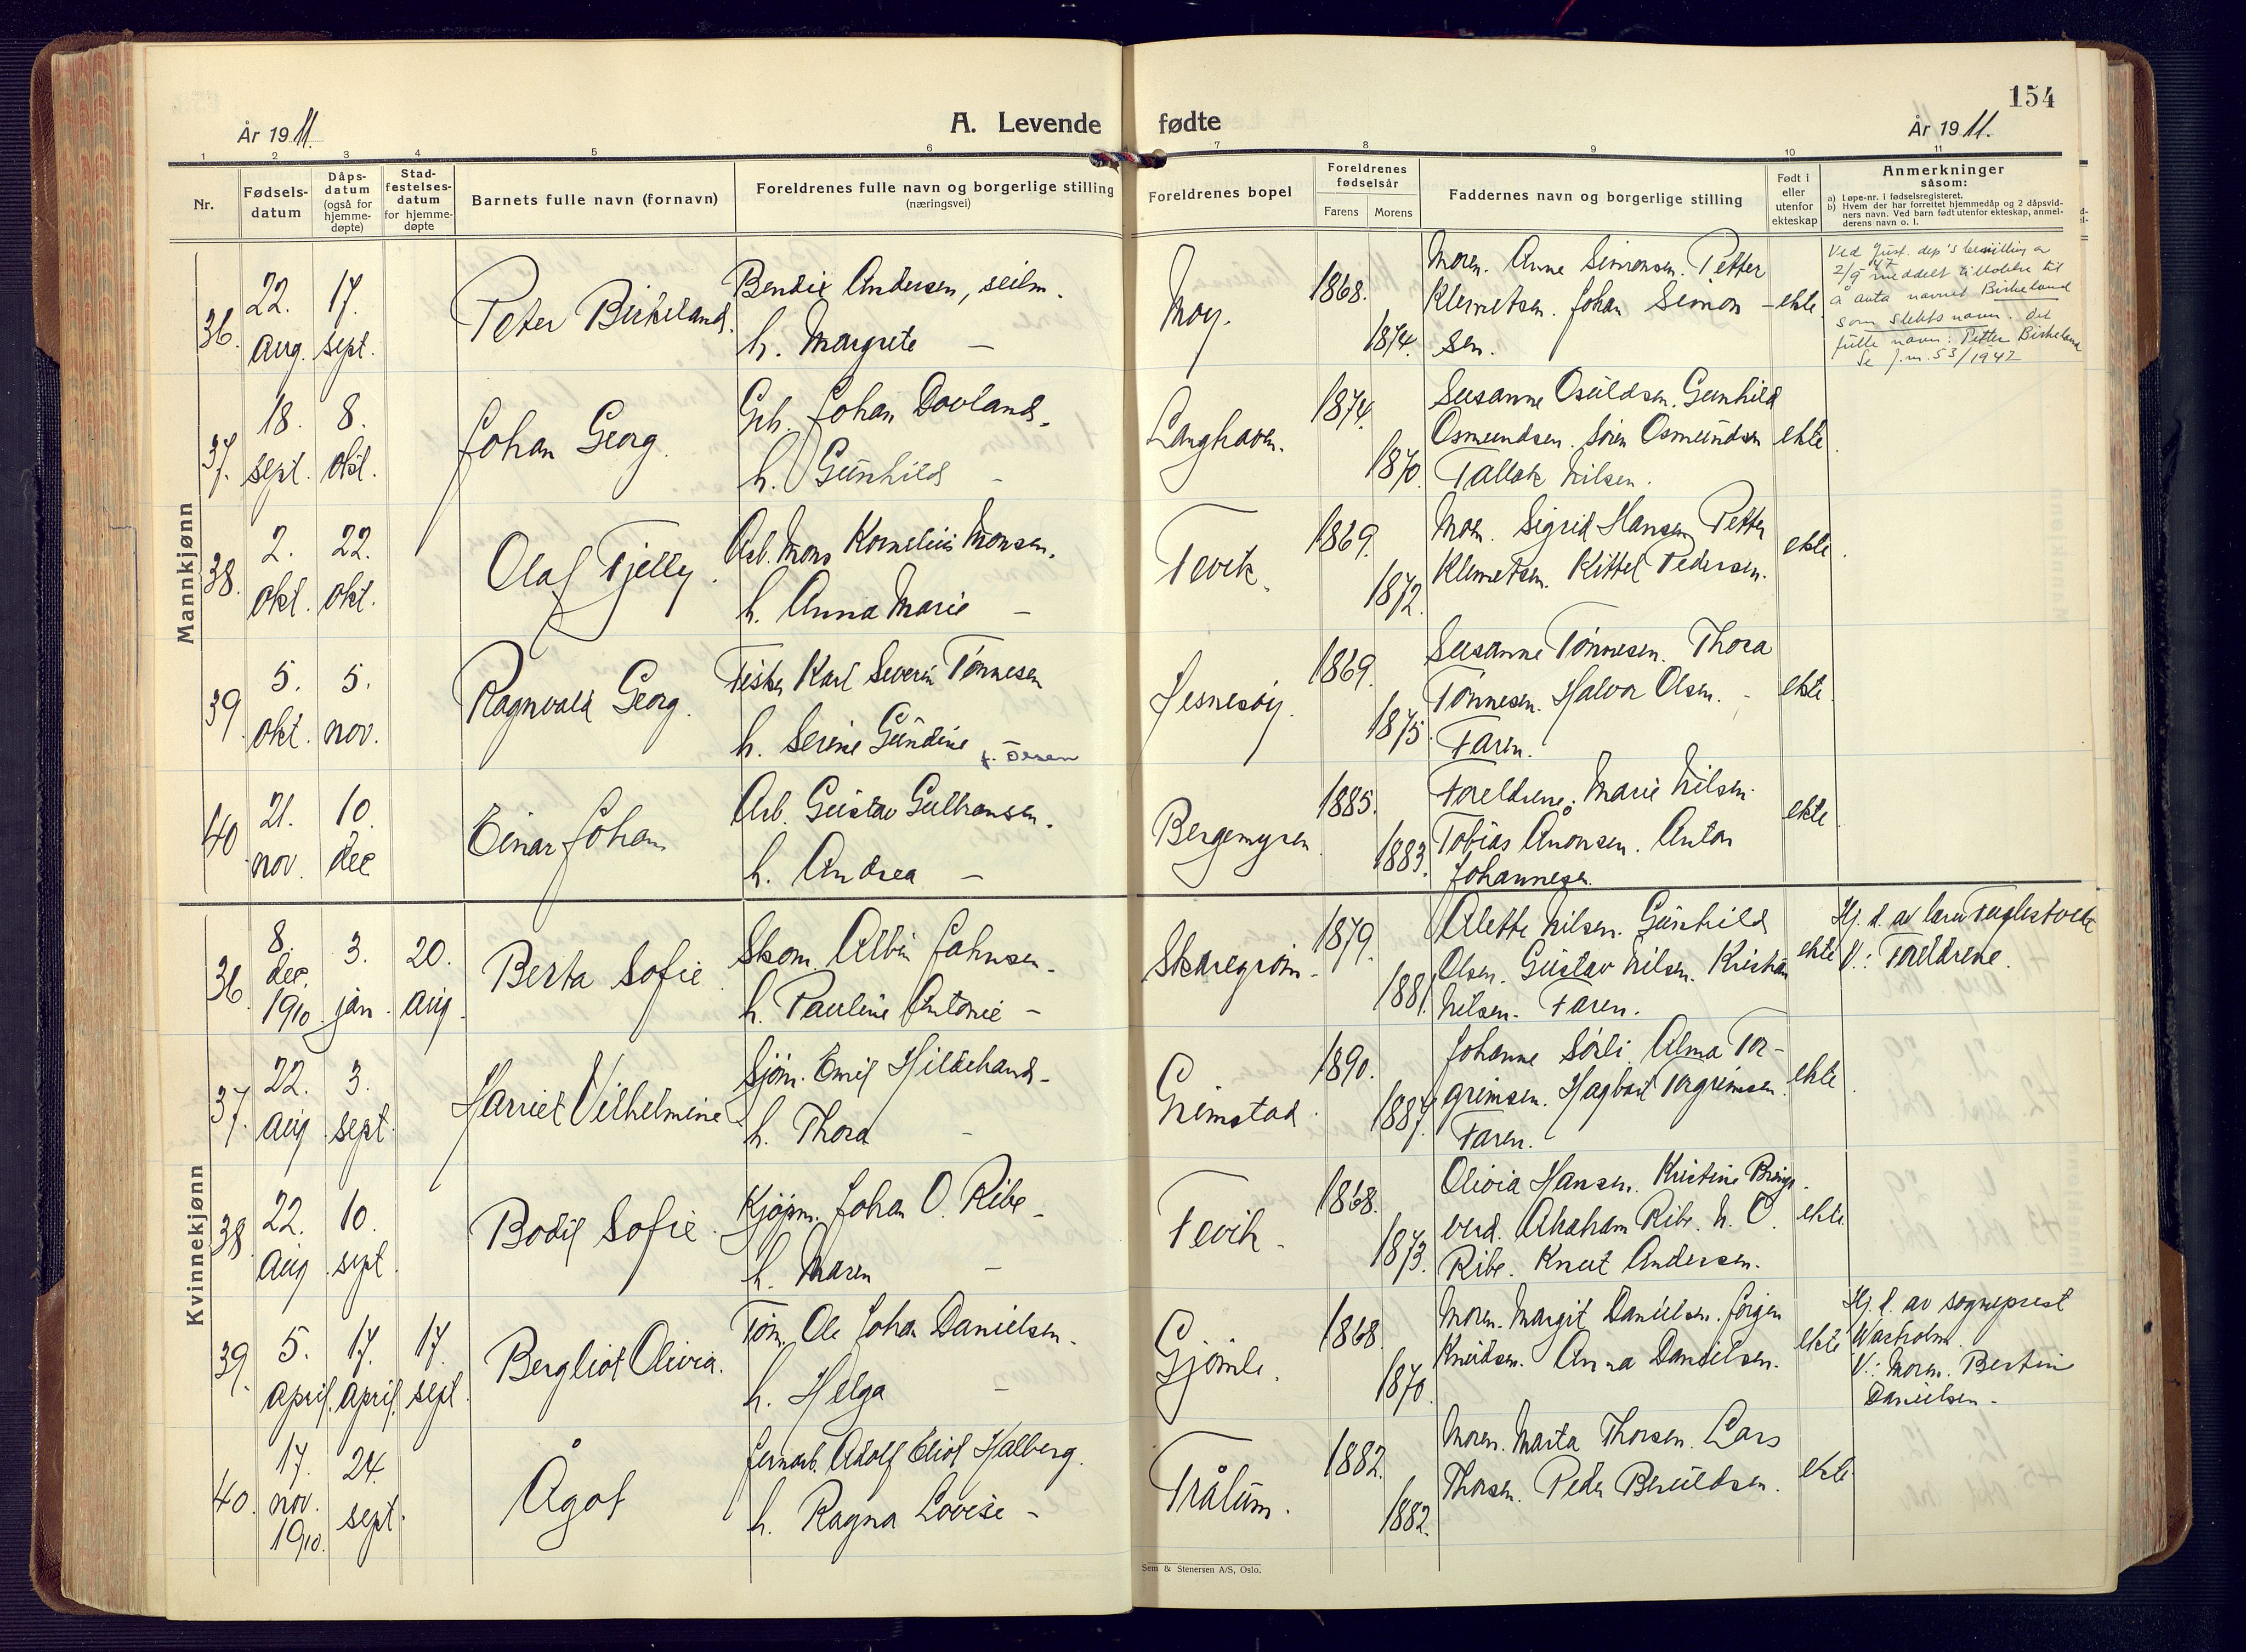 154
År 1911.
A. Levende fødte
År 1911.
1 2 3 4 5 6 7 8 9 10 11
Nr.
Fødsels-
datum
Dåps-
datum
(også for
hjemme-
døpte)
Stad-
festelses-
datum
for hjemme-
døpte
Barnets fulle navn (fornavn)
Foreldrenes fulle navn og borgerlige stilling
(næringsvei)
Foreldrenes bopel
Foreldrenes
fødselsår
Farens Morens
Faddernes navn og borgerlige stilling
Født i
eller
utenfor
ekteskap
Anmerkninger
såsom:
a) Løpe-nr. i fødselsregisteret.
b) Hvem der har forrettet hjemmedåp og 2 dåpsvid-
ners navn. Ved barn født utenfor ekteskap, anmel-
derens navn o. l.
Mannkjønn
36.
22.
aug.
17.
sept.
Peter Birkeland.
Bendix Andersen, seilm.
h. Margrete —
Moy.
1868.
1874.
Moren. Anne Simonsen. Petter
Klemetsen. Johan Simon-
sen.
ekte
Ved Just. dep's bevilling av
2/9 47 meddelt tillatelse til
å anta navnet Birkeland
som slektsnavn. Det
fulle navn: Petter Birkeland
Se j.nr. 53/1947
37.
18.
sept.
8.
okt.
Johan Georg.
Grb. Johan Dovland.
h. Gunhild -
Langhaven.
1874.
1870.
Susanne Osuldsen. Gunhild
Osmundsen. Sören Osmundsen
Tallak Nilsen.
ekte.
38.
2.
okt.
22.
okt.
Olaf Fjelly.
Arb. Mons Kornelius Monsen.
h. Anna Marie —
Fevik.
1869.
1872.
Moren. Sigrid Hansen. Petter
Klemetsen. Kittel Pedersen.
ekte.
39.
5.
okt.
5.
nov.
Ragnvald Georg.
Fisker Karl Severin Tönnesen
h. Serine Gundine — f. Olsen
Hesnesöy.
1869.
1875.
Susanne Tönnesen. Thora
Tönnesen. Halvor Olsen. -
Faren.
ekte.
40
21.
nov.
10.
dec
Einar Johan
Arb. Gustav Gulbransen.
h. Andrea —
Bergemyren.
1885.
1883.
Foreldrene. Marie Nilsen.
Tobias Ånonsen. Anton
Johannesen.
ekte
Kvinnekjønn
36
8.
dec.
1910.
3.
jan.
20.
aug.
Berta Sofie.
Skom. Albin Johnsen.
h. Pauline Antonie —
Skaregröm.
1879.
1881.
Alette Nilsen. Gunhild
Olsen. Gustav Nilsen. Kristian
Nilsen. Faren.
ekte
Hj. d. av lærer Fuglestvedt
V.: Foreldrene.
37.
22.
aug
3.
sept.
Harriet Vilhelmine
Sjöm. Emil Hildebrand-
h. Thora -
Grimstad.
1890.
1887.
Johanne Sörli. Alma Tor-
grimsen. Hagbart Torgrimsen.
Faren.
ekte.
38.
22.
aug.
10.
sept.
Bodil Sofie.
Kjöpm. Johan O. Ribe -
h. Maren —
Fevik.
1868.
1873.
Olivia Hansen. Kristine Brings-
verd. Abraham Ribe. N. O.
Ribe. Knut Andersen.
ekte.
39.
5.
april.
17.
april.
17.
sept.
Bergliot Olivia.
Töm. Ole Johan Danielsen.
h. Helga —
Gjömle.
1868
1870.
Moren. Margit Danielsen. Jörgen
Knudsen. Anna Danielsen.
ekte
Hj. d. av sogneprest
Warholm.
V.: Moren. Bertin
Danielsen.
40.
17.
nov.
1910.
24.
sept.
Ågot
Jernarb. Adolf Eliot Halberg.
h. Ragna Lovise -
Trålum.
1882.
1882.
Moren. Marta Thorsen. Lars
Thorsen. Peder Beruldsen.
ekte.
Sem & Stenersen A/S, Oslo.